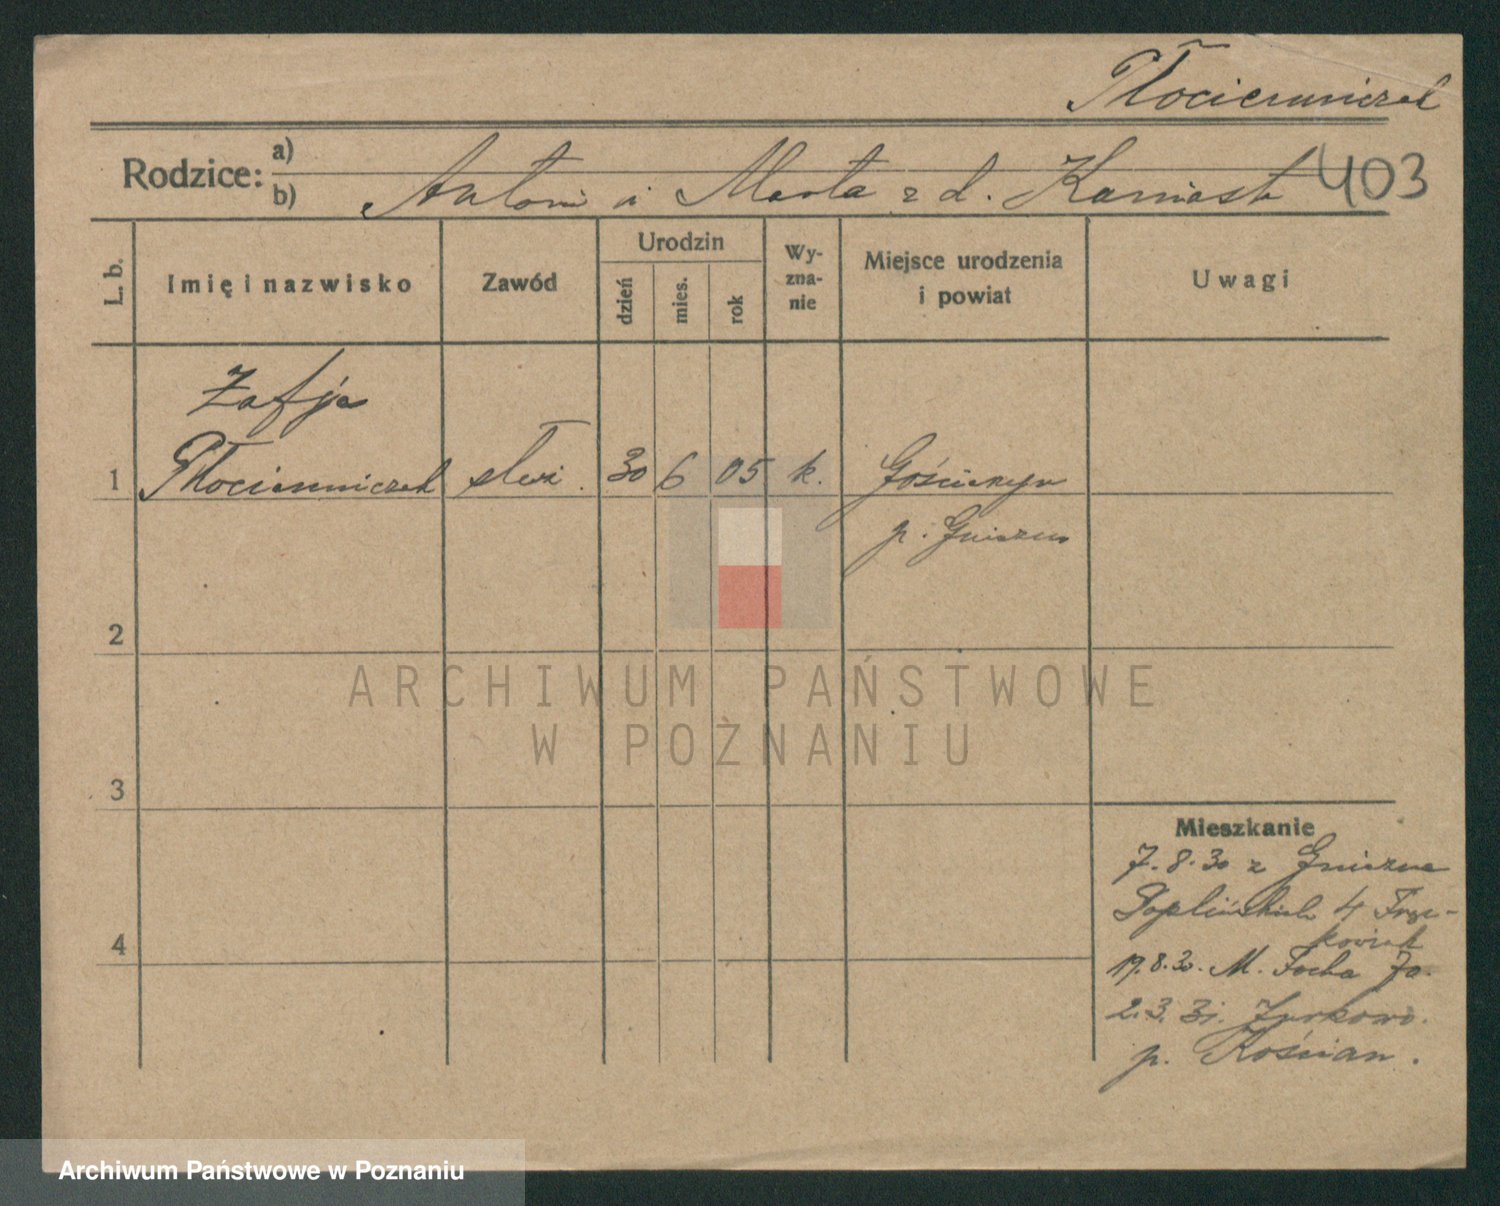 Płocienniczak
Rodzice: a)
b) Antoni i Marta z d. Kamiast
403
L. b.
Imię i nazwisko
Zawód
Urodzin
dzień
mies.
rok
Wy-
zna-
nie
Miejsce urodzenia
i powiat
Uwagi
Zofja
1 Płocienniczak służ. 30 6 05 k. Gościeszyn
p. Gniezno
2
3
4
ARCHIWUM PAŃSTWOWE
W POZNANIU
Mieszkanie
7.8.30 z Gniezna
Poplińskich 4
19.8.30. M. Focha 70.
2.3.31. Żurkowo.
p. Kościan.
Archiwum Państwowe w Poznaniu